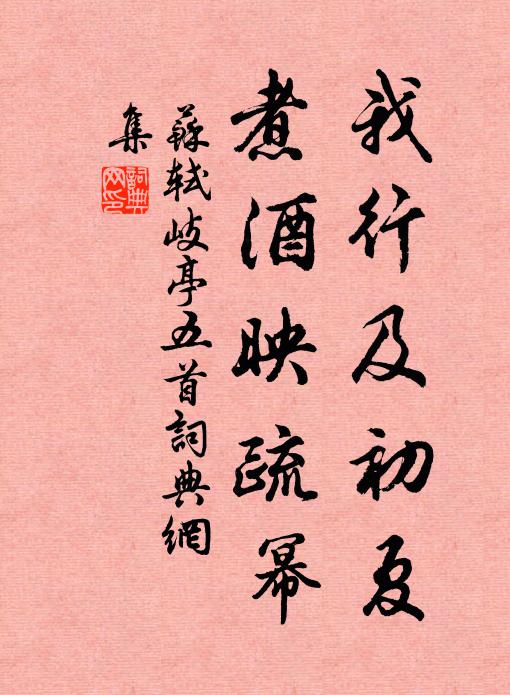 我行及初夏
煮酒映疏幂
蘇軾岐亭五首詞典網
集
詞典網印